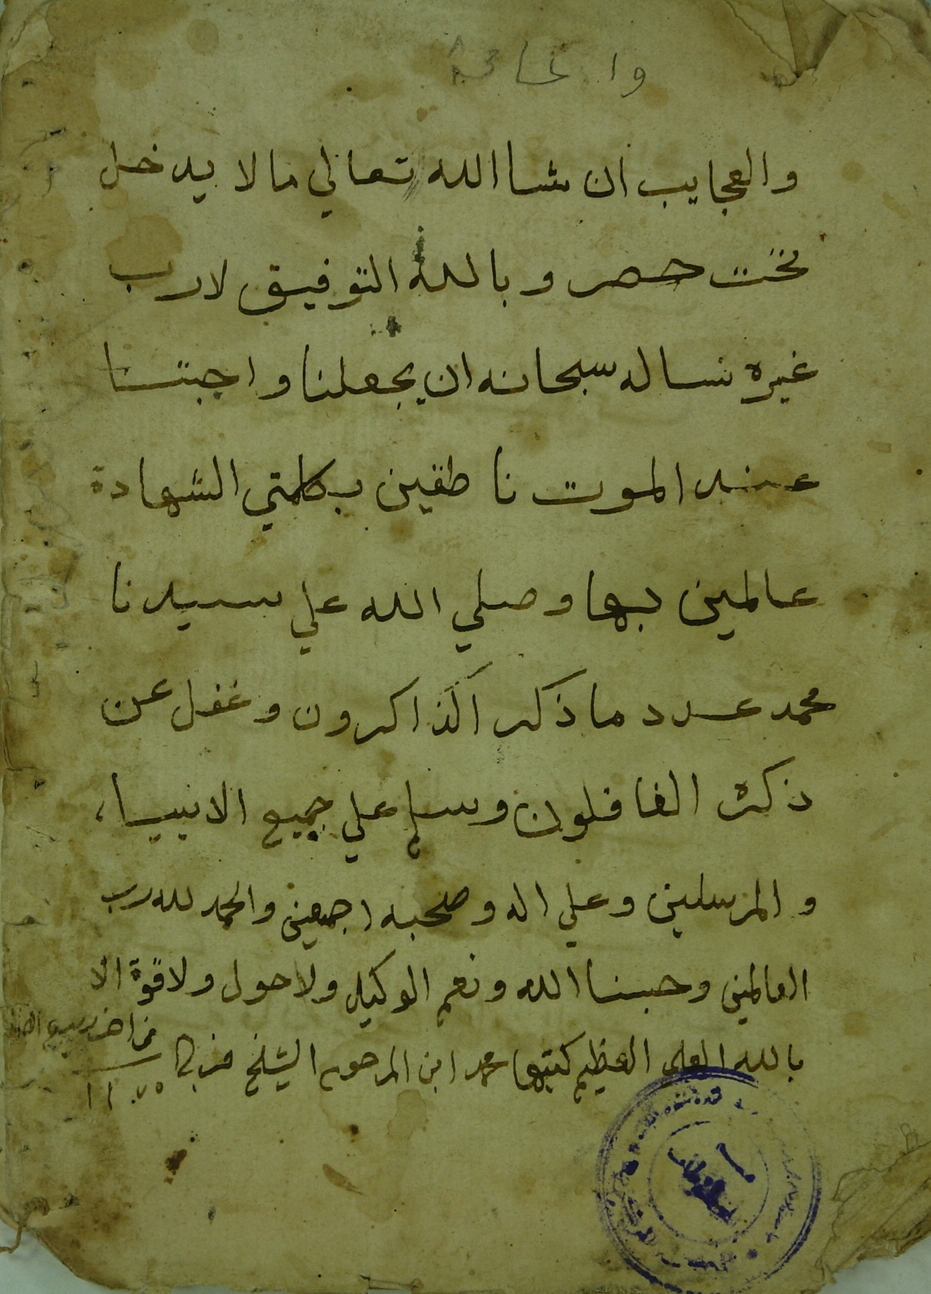 والعجايب ان شا الله تعالي مالا يدخل
تحت حصر وبالله التوفيق لارب
غيره نساله سبحانه ان يجعلنا واحبتنا
عند الموت ناطقين بكلمتي الشهادة
عالمين بها وصلي الله علي سيدنا
محمد عدد ما ذكر الذاكرون وغفل عن
ذكره الغافلون وسلم علي جميع الانبيا،
والمرسلين وعلي اله وصحبه اجمعين والحمد لله رب
العالمين وحسبنا الله ونعم الوكيل ولاحول ولاقوة الا
بالله العلي العظيم كتبها محمد ابن المرحوم الشيخ